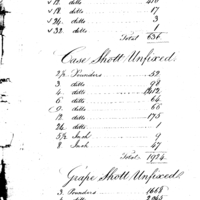 12 ditto 410
18. ditto 17
24. ditto 3
32. ditto
Total. 636.
Case Shott Unfixed.
2/6 Pounders 52.
3 ditto 98
4 ditto
6 ditto 64
9 ditto 66
12 ditto 175
24 ditto 1
5½ Inch 9
8 Inch 47
Total. 1924.
Grape Shott Unfixed
3. Pounders 1668